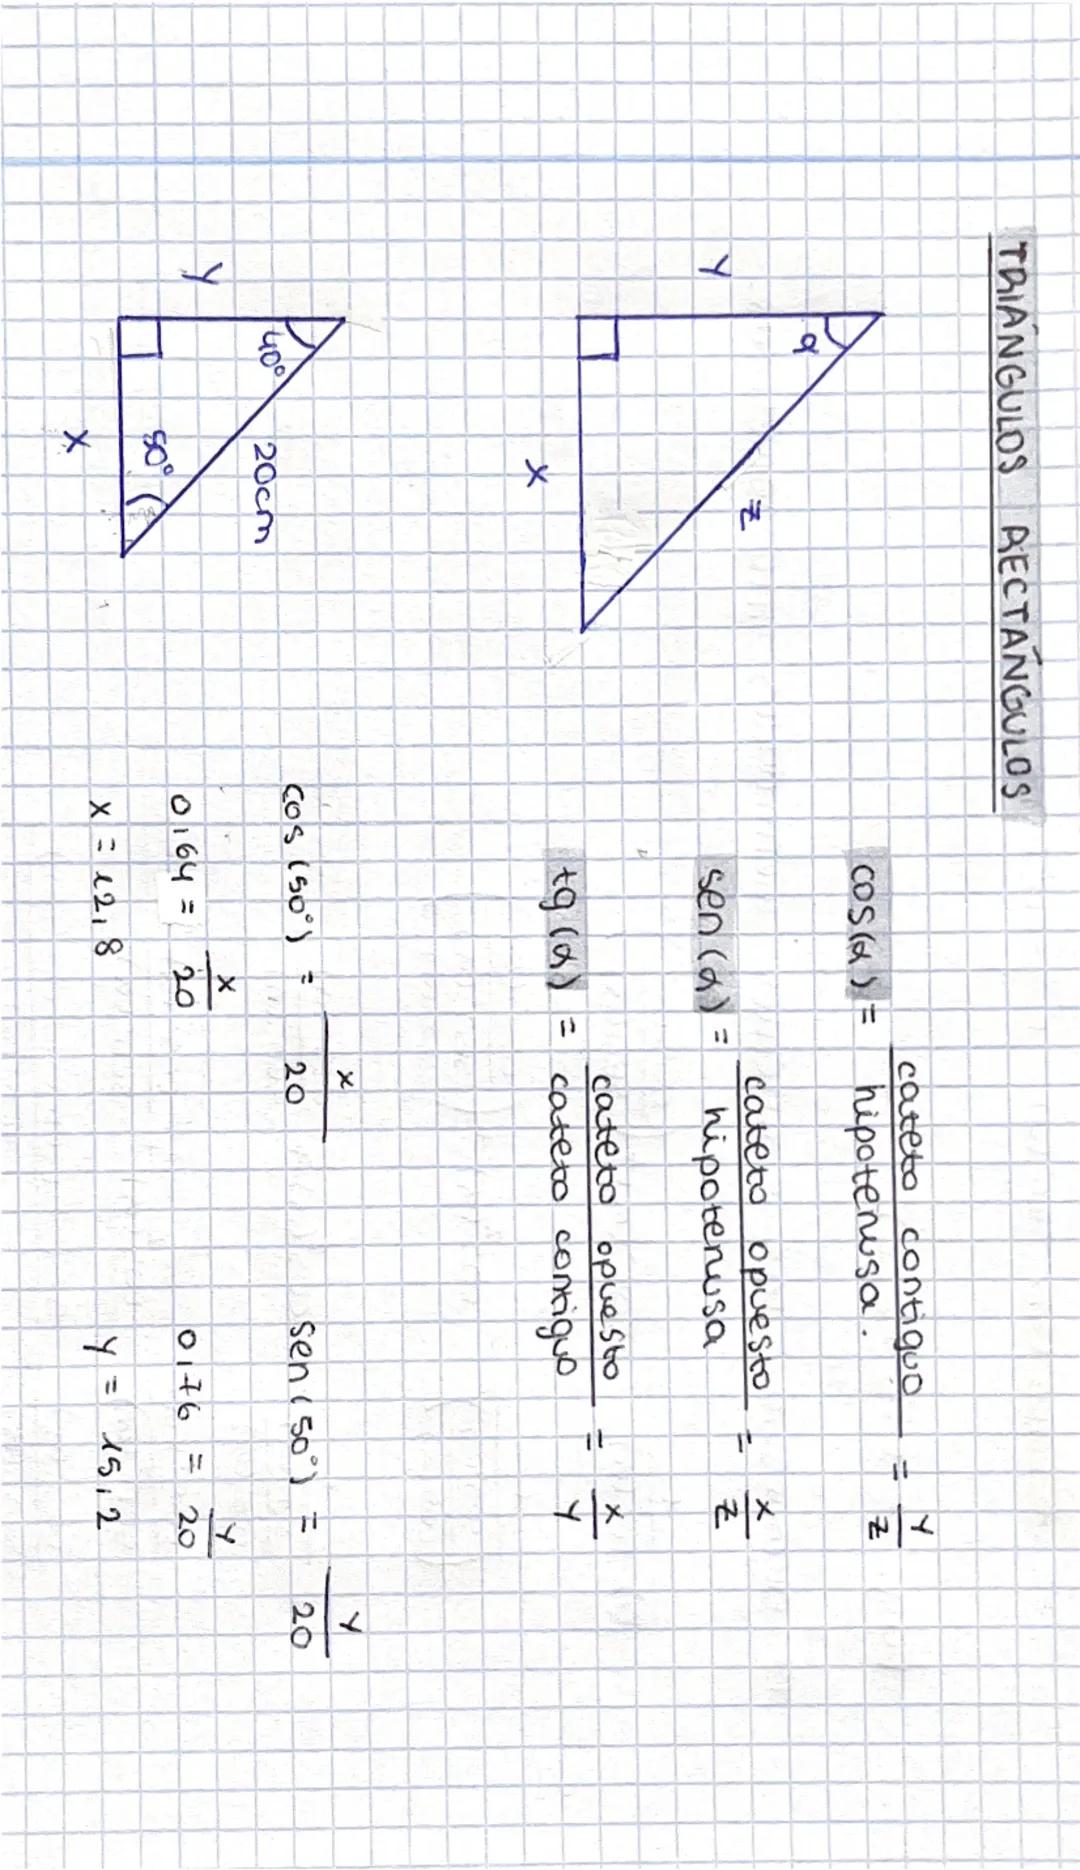 TRIÁNGULOS RECTÁNGULOS
α
Y
Z
X
cos(α) = cateto contiguo / hipotenusa. = Y / Z
sen(α) = cateto opuesto / hipotenusa = X / Z
tg(α) = cateto opuesto / cateto contiguo = X / Y
40°
20cm
Y
50°
X
cos (50°) = X / 20
0,64 = X / 20
X = 12,8
sen (50°) = Y / 20
0,76 = Y / 20
Y = 15,2